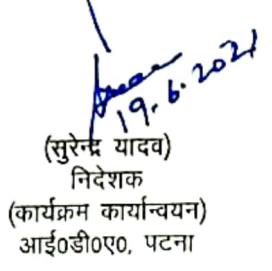 19.6.2021
(सुरेन्द्र यादव)
निदेशक
(कार्यक्रम कार्यान्वयन)
आई०डी०ए०, पटना